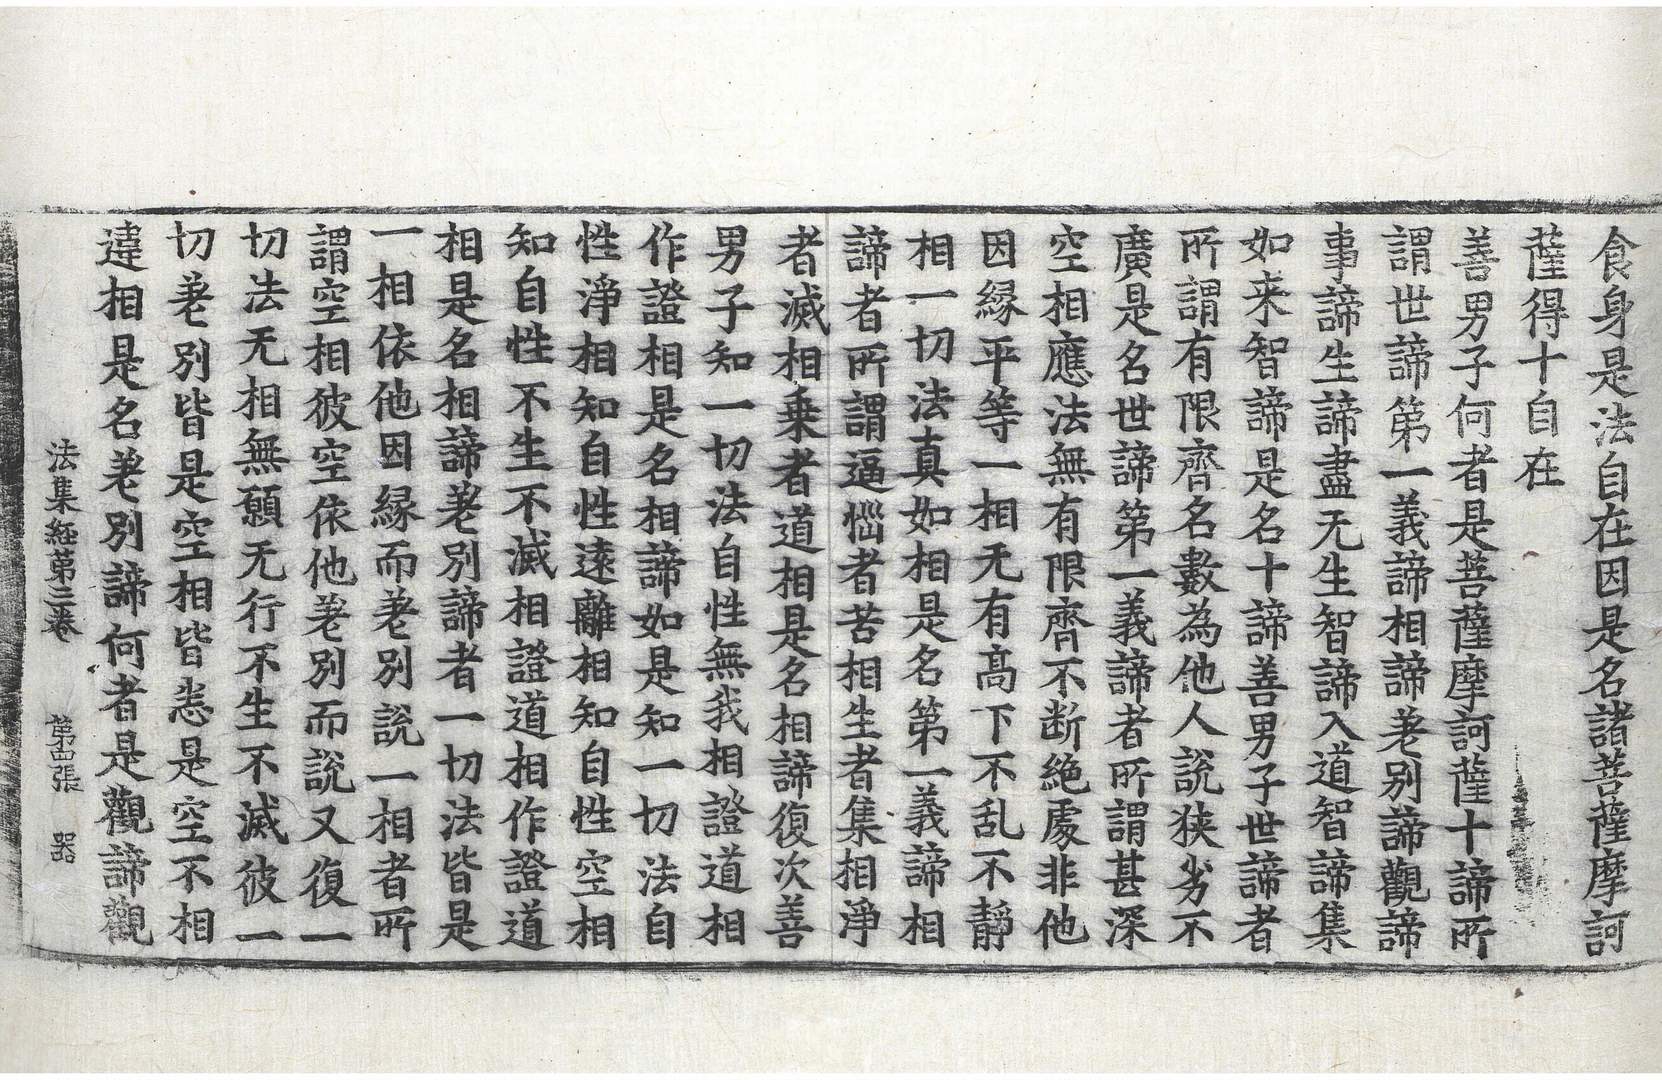 食身是法自在因是名諸菩薩摩訶
薩得十自在
善男子何者是菩薩摩訶薩十諦所
謂世諦第一義諦相諦差別諦觀諦
事諦生諦盡无生智諦入道智諦集
如来智諦是名十諦善男子世諦者
所謂有限齊名數為他人說狹劣不
廣是名世諦第一義諦者所謂甚深
空相應法無有限齊不断絶處非他
因縁平等一相无有高下不乱不靜
相一切法真如相是名第一義諦相
諦者所謂逼惱者苦相生者集相淨
者滅相乗者道相是名相諦復次善
男子知一切法自性無我相證道相
作證相是名相諦如是知一切法自
性淨相知自性遠離相知自性空相
知自性不生不滅相證道相作證道
相是名相諦差別諦者一切法皆是
一相依他因縁而差別說一相者所
謂空相彼空依他差別而說又復一
切法无相無願无行不生不滅彼一
切差別皆是空相皆悉是空不相
違相是名差別諦何者是觀諦觀
法集経第三卷 第四張 器